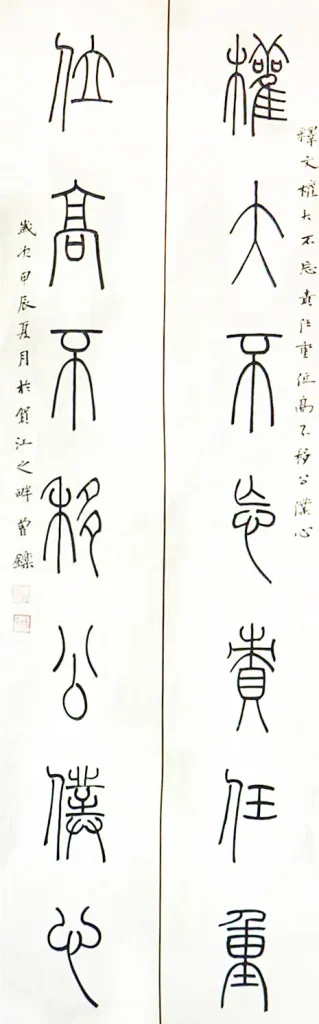 釋文權大不忘責任重位高不移公僕心
權大不忘責任重
位高不移公僕心
歲次甲辰夏月於賀江之畔曾